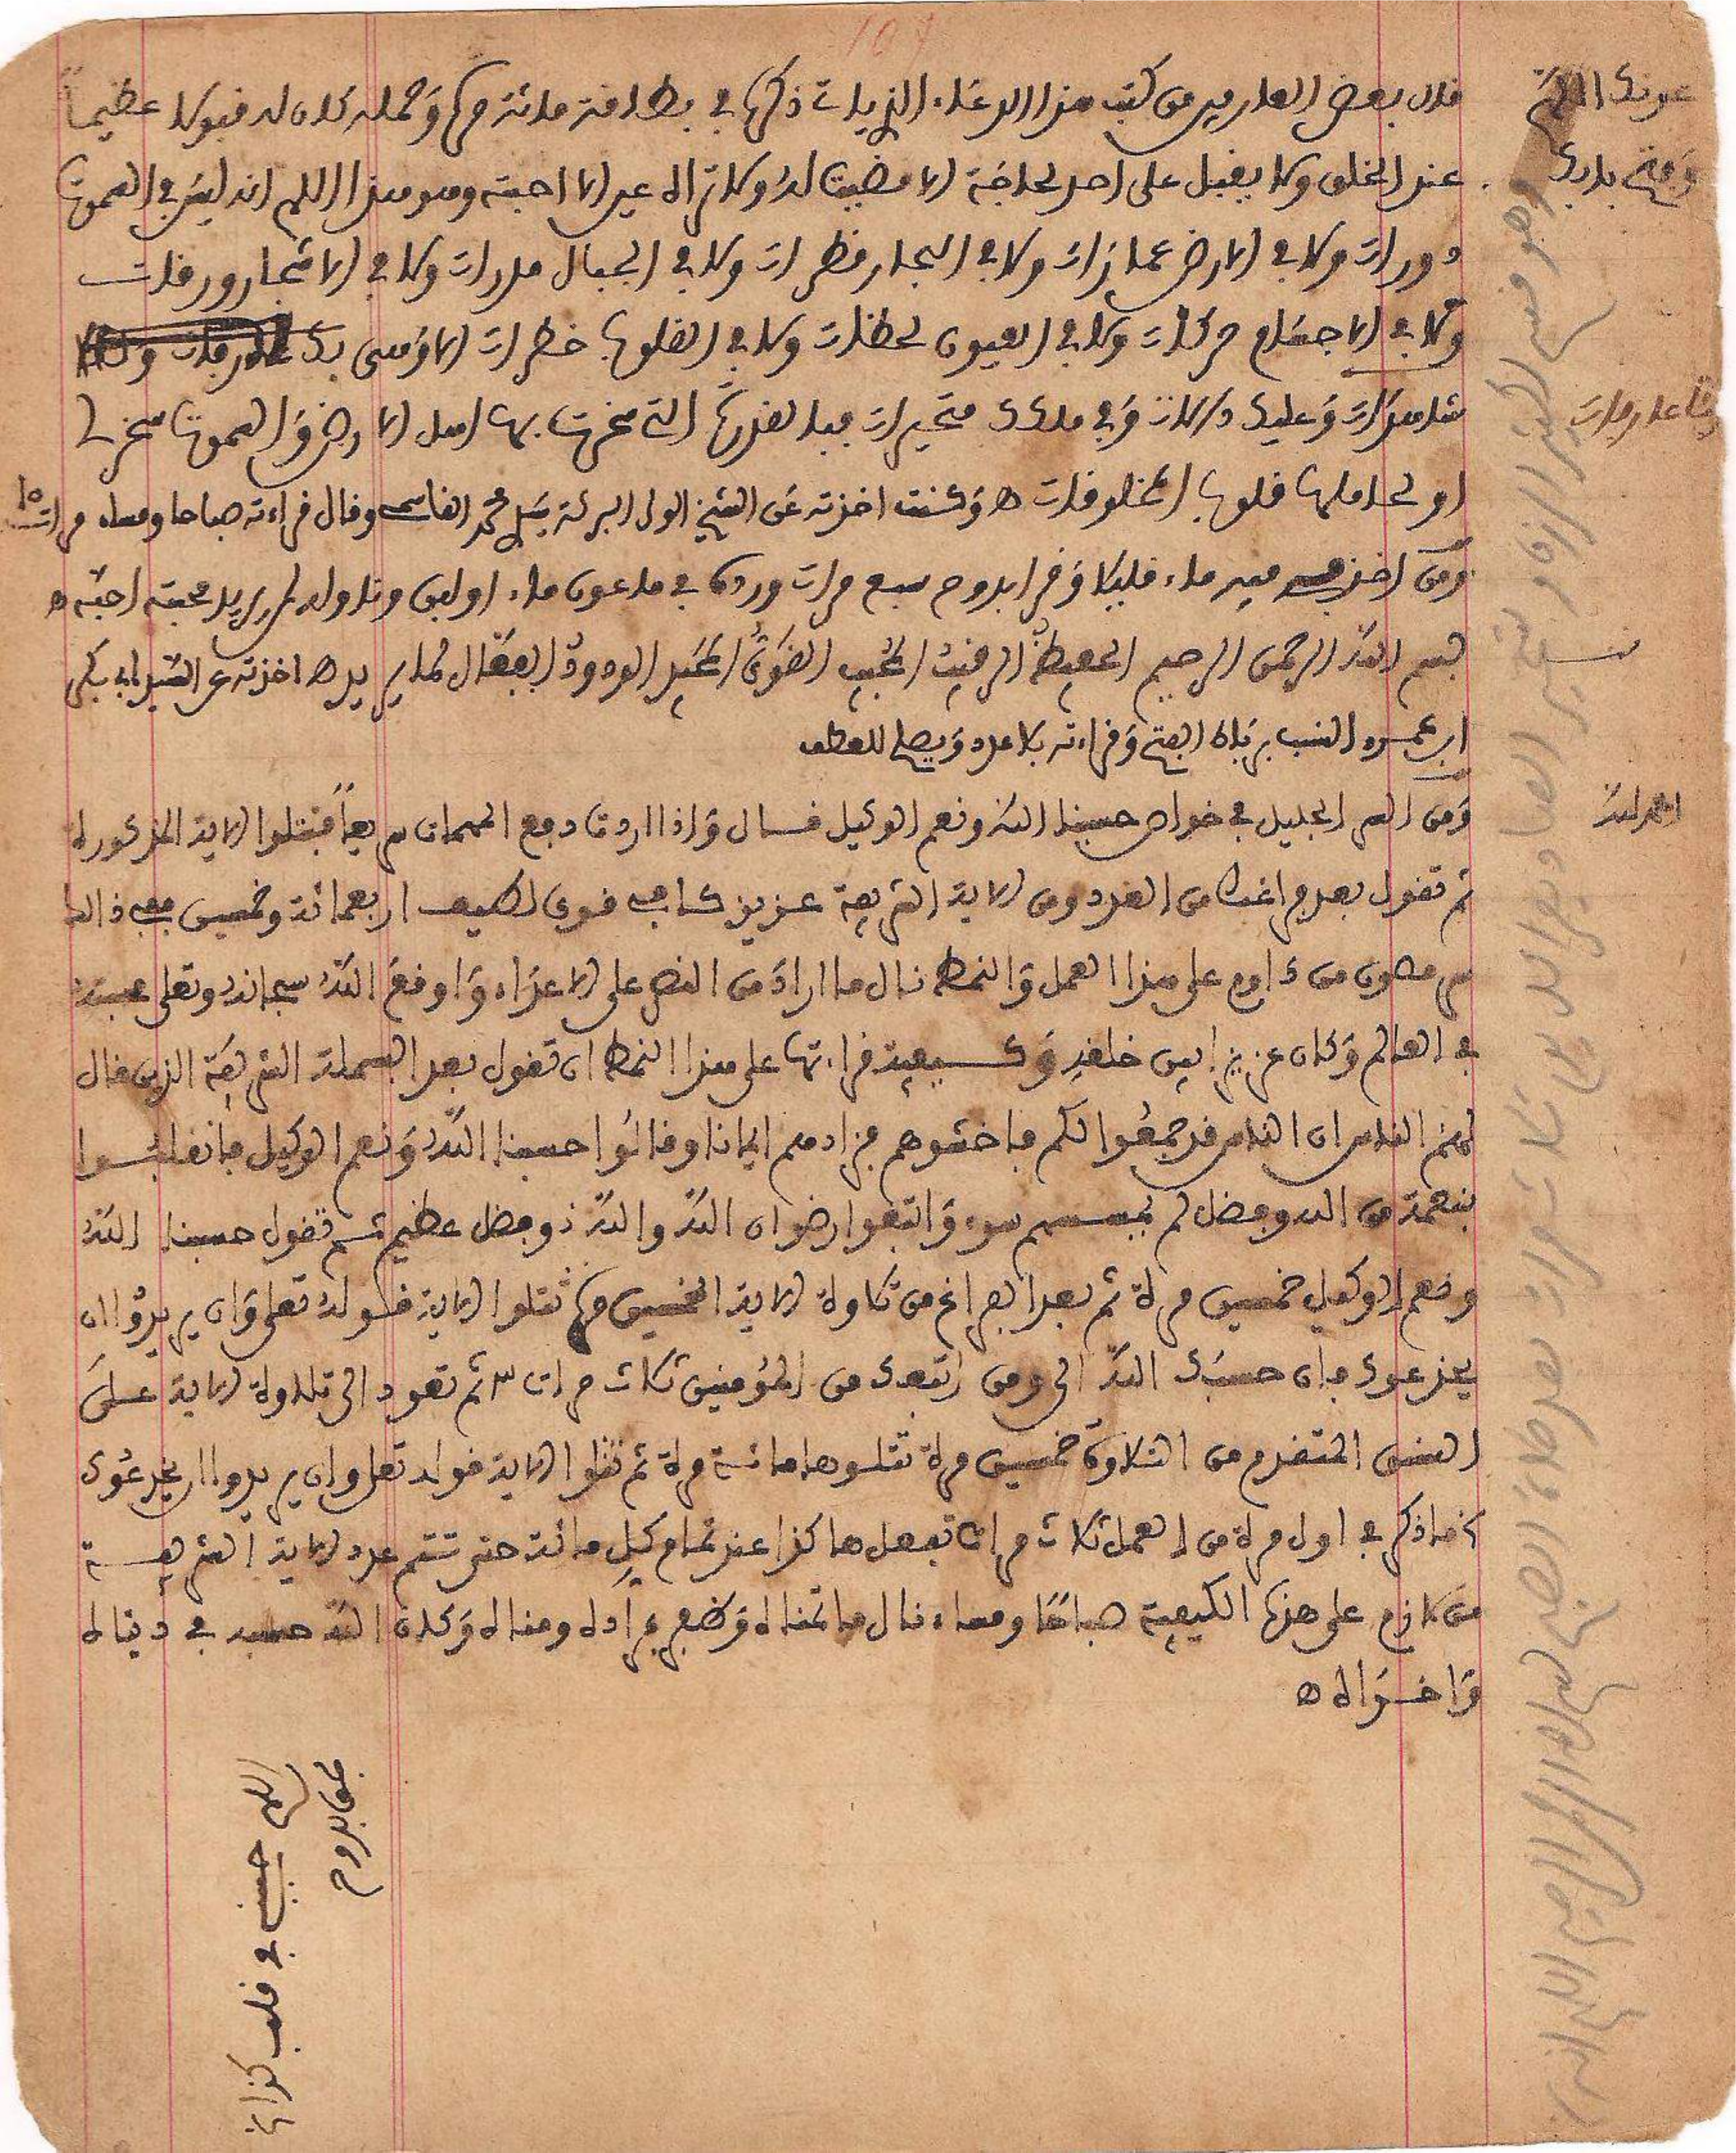 107
عونك اللهم
وفتح بابك
قال بعض العارفين من كتب هذا الدعاء الذي يات ذكره في بطاقة مائة مرة وحمله كان له قبولا عظيما
عند الخلق ولا يقبل على احد لحاجة الا قضيت له ولا تراه عين الا احبته وهو هذا اللهم انه ليس في السموت
دورات ولا في الارض غمزات ولا في البحار قطرات ولا في الجبال مدرات ولا في الاشجار ورقات
ولا في الاجسام حركات ولا في العيون لحظات ولا في القلوب خطرات الا وهي بك عارفات و
شاهدات وعليك دالات وفي ملكك متحيرات فبالقدرة التي سخرت بها اهل الارض والسموت سخر لي
او لحاملها قلوب المخلوقات ه وكنت اخذته عن الشيخ الولي البركة سيد محمد الفاسي وقال قراءته صباحا ومساء مرات ١٥
ومن اخذ فيه ماء قليلا وقرا بدوح سبع مرات ورده في ماعون ماء اولبن وناوله لمن يريد محبته احبه ه
بسم الله الرحمن الرحيم الحفيظ الرقيب المجيب القوي المجيد الودود الفعال لما يريد ه اخذته عن السيد ابي بكر
ابن عمرو النسب بزيادة الفتح وقراءته بلا عدد ويصلح للعطف
الحمد لله
ومن السر الجليل في خواص حسبنا الله ونعم الوكيل قال واذا اردت دفع المهمات سريعا فتتلوا الاية المذكورة
ثم تقول بعد فراغك من العدد ومن الاية الشريفة عزيز كافي قوي لطيف اربعمائة وخمسين ففي ذالك
سر مصون من داوم على هذا العمل والنمط نال ما اراد من النصر على الاعداء واوقع الله سبحانه وتعلى هيبته
في العالم وكان عزيزا بين خلقه وكيفية قراءتها على هذا النمط ان تقول بعد البسملة الشريفة الذين قال
لهم الناس ان الناس قد جمعوا لكم فاخشوهم فزادهم ايمانا وقالوا حسبنا الله ونعم الوكيل فانقلبوا
بنعمة من الله وفضل لم يمسسهم سوء واتبعوا رضوان الله والله ذو فضل عظيم ثم تقول حسبنا الله
ونعم الوكيل خمسين مرة ثم بعد الفراغ من تلاوة الاية الخمسين مرة تتلوا الاية قوله تعلى وان يريدوا ان
يخدعوك فان حسبك الله الى ومن اتبعك من المؤمنين ثلاث مرات ٣ ثم تعود الى تلاوة الاية على
النسق المتقدم من التلاوة خمسين مرة تتلوها مائة مرة ثم تتلوا الاية قوله تعلى وان يريدوا ان يخدعوك
كما ذكر في اول مرة من العمل ثلاث مرات تفعل هاكذا عند تمام كل مائة حتى تتم عدد الاية الشريفة
من لازم على هذه الكيفية صباحا ومساء نال ما تمناه وظفر بمراده ومناه وكان الله حسبه في دنياه
واخراه ه
اللهم حببني في قلب كذا
بحق بدوح